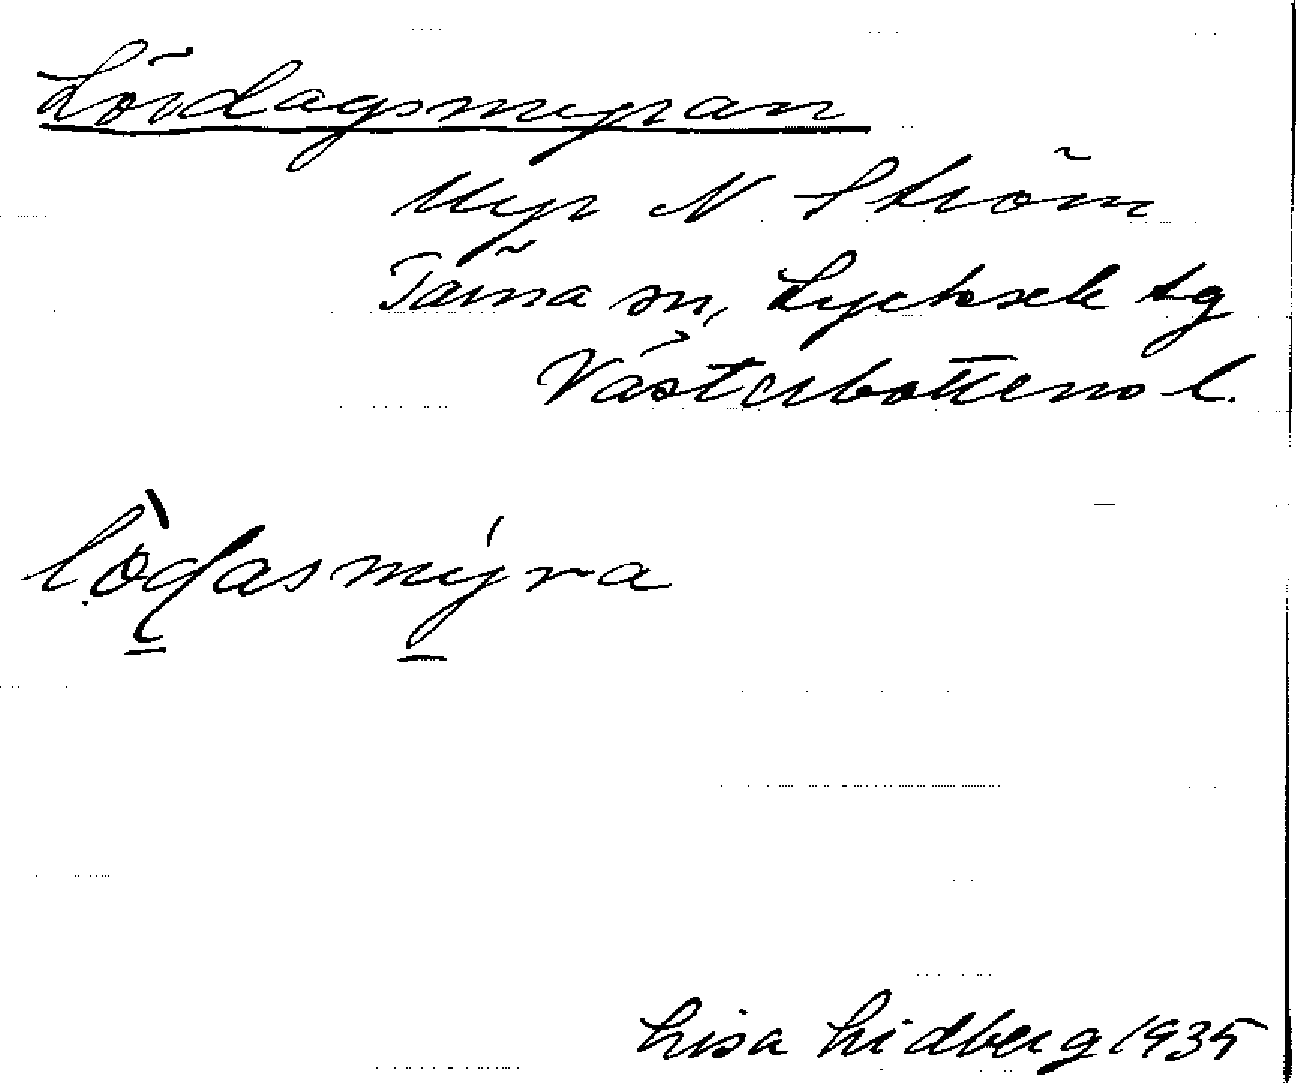 Lördagsmyran
Myr N Ström
Tärna sn, Lycksele tg
Västerbottens l.
lòdasmýra
Lisa Lidberg 1935